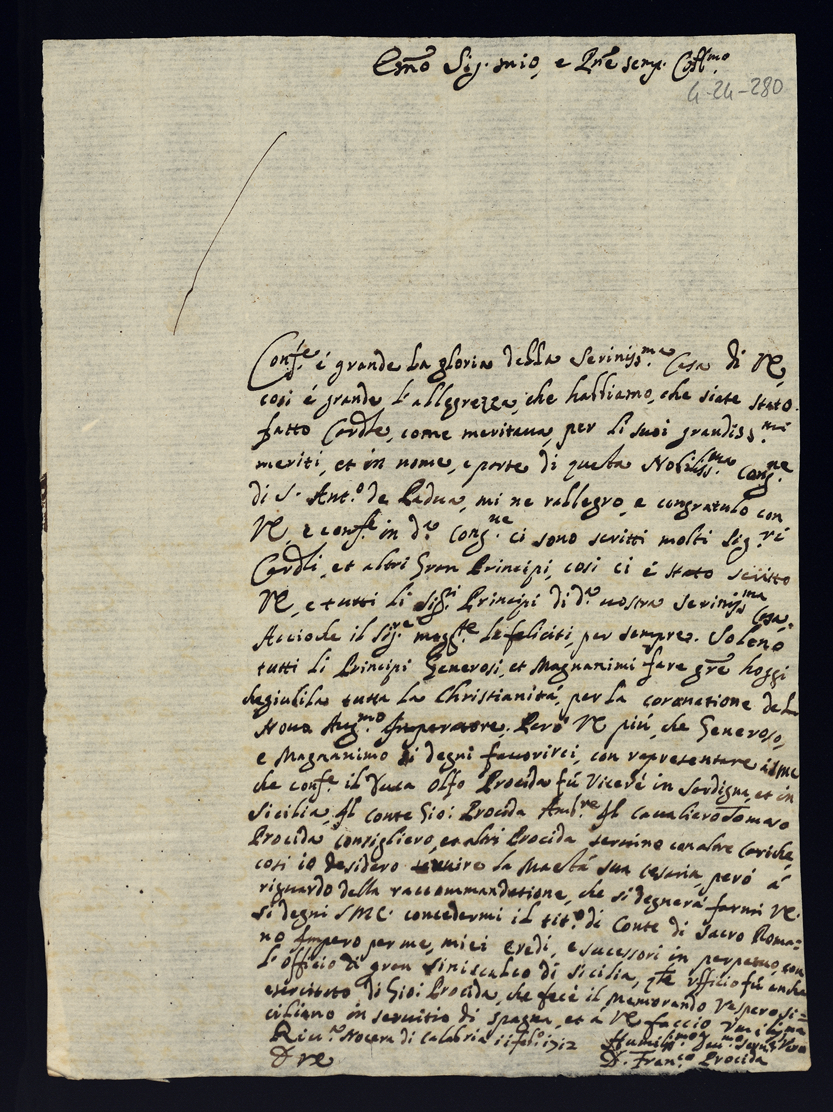 Em̃o Sig. mio, e Pñe semp. Coll.mo
4-24-280
Conf.e é grande la gloria della Seriniss.ma Casa di VE,
cosi é grande l'allegrezza, che habbiamo, che siate stato
fatto Cardle, come meritaua, per li suoi grandiss.mi
meriti, et in nome, e parte di questa Nobiliss.ma Cong.ne
di S. Ant.o de Padua, mi ne rallegro, e congratulo con
VE, e conf.e in d.a Cong.ne ci sono scritti molti Sig.ri
Cardli, et altri Gran Principi, cosi ci é stato scritto
VE, e tutti li Sig.ri Principi di d.a vostra Seriniss.ma Casa,
Accioche il Sig.re le feliciti, per sempre. Soleno
tutti li Principi Generosi, et Magnanimi fare grẽ hoggi
che giubila tutta la Christianità, per la coronatione del
Novo Aug.mo Imperatore. Peró VE piú, che Generoso,
e Magnanimo si degni favorirci, con representare
che conf.e il Duca Olfo Procida fú Viceré in Sardigna, et in
Sicilia, Il Conte Gioi Procida Amb.re Il Cavaliero Tomaso
Procida Consigliero, et altri Procida con altre Cariche,
cosi io desidero servire la Maestá sua Cesaria, peró á
riguardo della raccommandatione, che si degnerá farmi VE.
si degni SMC. concedermi il tit.o di Conte di Sacro Roma=
no Impero per me, miei eredi, e sucessori in perpetuo, con
l'officio di gran Siniscalco di Sicilia, officio fú anche
esercitato di Gioi Procida, che fece il memorando Vespero Si=
ciliano in servitio di Spagna, et á VE faccio
Riv.a Nocera di Calabria 1712 Humiliss.mo Serv.e Vero
D. Fran.co Procida